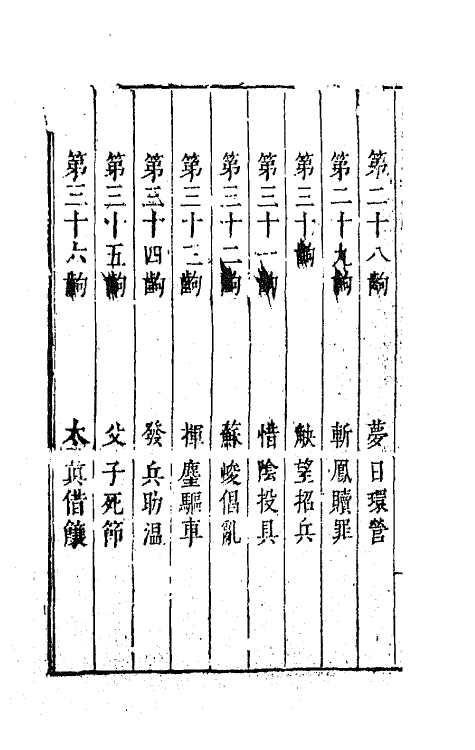 第二十八齣 夢日環營
第二十九齣 斬鳳贖罪
第三十齣 觖望招兵
第三十一齣 惜陰投具
第三十二齣 蘇峻倡亂
第三十三齣 揮麈驅車
第三十四齣 發兵助溫
第三十五齣 父子死節
第三十六齣 太真借饟